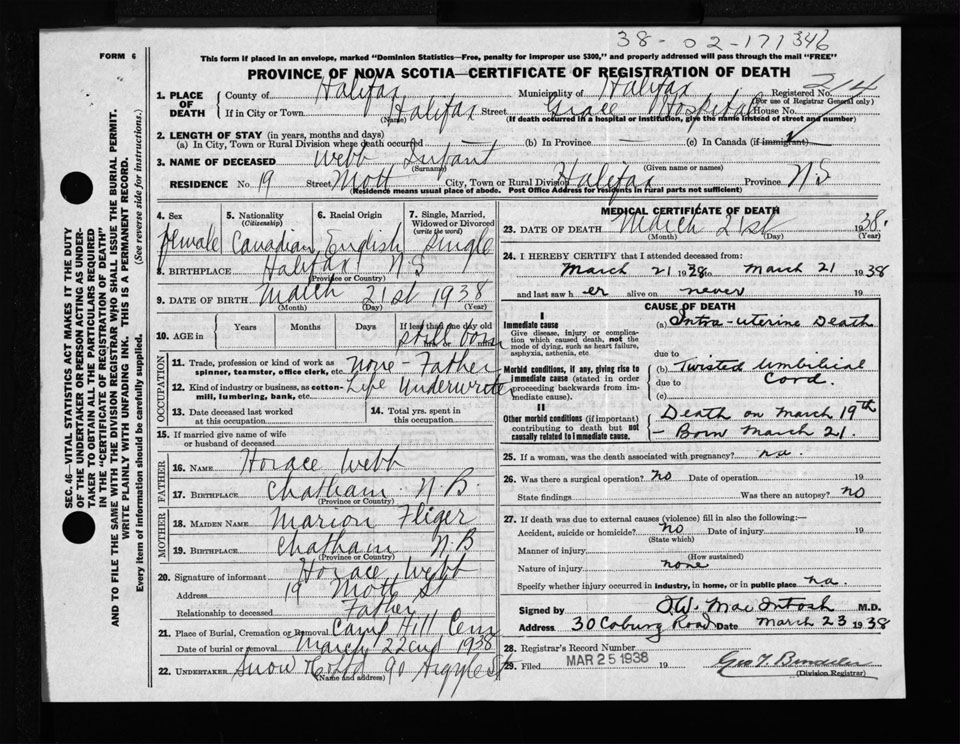 38-02-171346
FORM 6
This form if placed in an envelope, marked "Dominion Statistics—Free, penalty for improper use $300," and properly addressed will pass through the mail "FREE"
PROVINCE OF NOVA SCOTIA—CERTIFICATE OF REGISTRATION OF DEATH
SEC. 46—VITAL STATISTICS ACT MAKES IT THE DUTY
OF THE UNDERTAKER OR PERSON ACTING AS UNDER-
TAKER TO OBTAIN ALL THE PARTICULARS REQUIRED
IN THE "CERTIFICATE OF REGISTRATION OF DEATH"
AND TO FILE THE SAME WITH THE DIVISION REGISTRAR WHO SHALL ISSUE THE BURIAL PERMIT.
WRITE PLAINLY WITH UNFADING INK. THIS IS A PERMANENT RECORD.
Every item of information should be carefully supplied. (See reverse side for instructions.)
1. PLACE OF DEATH County of Halifax Municipality of Halifax Registered No. 214
(For use of Registrar General only)
If in City or Town Halifax Street Grace Hospital House No.
(Name) (If death occurred in a hospital or institution, give the name instead of street and number)
2. LENGTH OF STAY (in years, months and days)
(a) In City, Town or Rural Division where death occurred — (b) In Province — (c) In Canada (if immigrant) ✓
3. NAME OF DECEASED Webb Infant
(Surname) (Given name or names)
RESIDENCE No. 19 Street Mott City, Town or Rural Division Halifax Province N.S
(Residence means usual place of abode. Post Office Address for residents in rural parts not sufficient)
4. Sex 5. Nationality 6. Racial Origin 7. Single, Married,
(Citizenship) Widowed or Divorced
(write the word)
female Canadian English Single
8. BIRTHPLACE Halifax N.S
(Province or Country)
9. DATE OF BIRTH March 21st 1938
(Month) (Day) (Year)
10. AGE in Years Months Days If less than one day old
still born
OCCUPATION
11. Trade, profession or kind of work as None - Father
spinner, teamster, office clerk, etc.
12. Kind of industry or business, as cotton- Life Underwriter
mill, lumbering, bank, etc.
13. Date deceased last worked 14. Total yrs. spent in
at this occupation this occupation
15. If married give name of wife
or husband of deceased
FATHER
16. NAME Horace Webb
17. BIRTHPLACE Chatham N.B.
(Province or Country)
MOTHER
18. MAIDEN NAME Marion Fliger
19. BIRTHPLACE Chatham N.B
(Province or Country)
20. Signature of informant Horace Webb
Address 19 Mott St
Relationship to deceased Father
21. Place of Burial, Cremation or Removal Camp Hill Cem
Date of burial or removal March 22nd 1938
22. UNDERTAKER Snow & Co Ltd 90 Argyle St
(Name and address)
MEDICAL CERTIFICATE OF DEATH
23. DATE OF DEATH March 21st 1938
(Month) (Day) (Year)
24. I HEREBY CERTIFY that I attended deceased from:
March 21 1938 to March 21 1938
and last saw her alive on never 19
CAUSE OF DEATH
I
Immediate cause
Give disease, injury or complica-
tion which caused death, not the
mode of dying, such as heart failure,
asphyxia, asthenia, etc
(a) Intra-uterine Death
due to
Morbid conditions, if any, giving rise to
immediate cause (stated in order
proceeding backwards from im-
mediate cause).
(b) Twisted Umbilical
due to Cord.
(c)
II
Other morbid conditions (if important)
contributing to death but not
causally related to immediate cause.
Death on March 19th
- Born March 21.
25. If a woman, was the death associated with pregnancy? na.
26. Was there a surgical operation? no Date of operation 19
State findings Was there an autopsy? no
27. If death was due to external causes (violence) fill in also the following:—
Accident, suicide or homicide? no Date of injury 19
(State which)
Manner of injury
(How sustained)
Nature of injury none
Specify whether injury occurred in industry, in home, or in public place na.
Signed by MacIntosh M.D.
Address 30 Coburg Road Date March 23 1938
28. Registrar's Record Number
29. Filed MAR 25 1938
(Division Registrar)